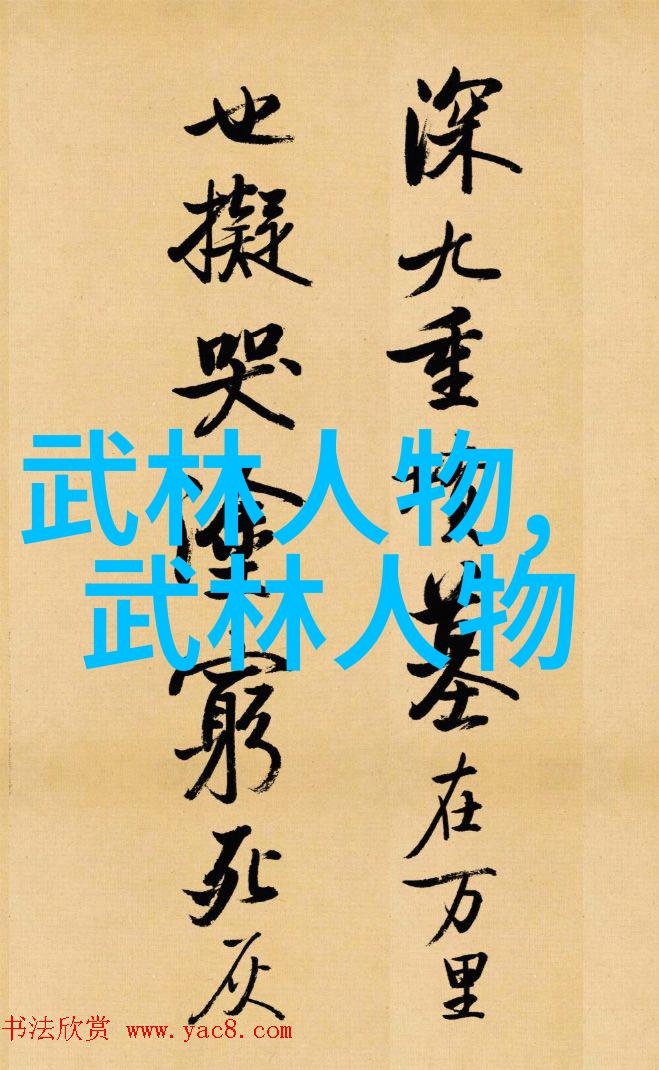 深九重墳墓在万里
也擬哭塗窮死灰
武林人物，
武林人物
书法欣赏 www.yac8.com